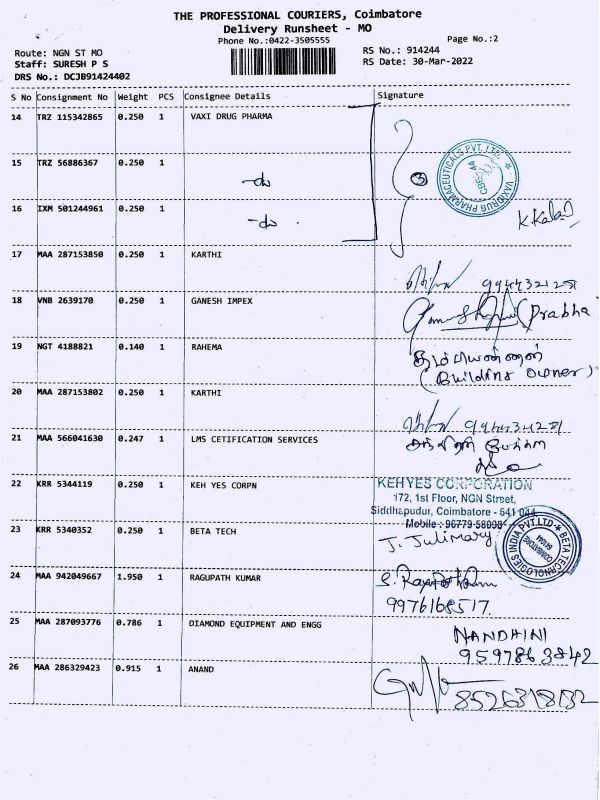 THE PROFESSIONAL COURIERS, Coimbatore
Delivery Runsheet - MO
Phone No.:0422-3505555
Page No.:2
Route: NGN ST MO
Staff: SURESH P S
DRS No.: DCJB91424402
RS No.: 914244
RS Date: 30-Mar-2022
S No Consignment No Weight PCS Consignee Details Signature
14 TRZ 115342865 0.250 1 VAXI DRUG PHARMA
15 TRZ 56886367 0.250 1 -do
3
VAXIDRUG PHARMACEUTICALS PVT. LTD.
CBE-44
16 IXM 501244961 0.250 1 -do .
17 MAA 287153850 0.250 1 KARTHI
18 VNB 2639170 0.250 1 GANESH IMPEX
(Prabha
19 NGT 4188821 0.140 1 RAHEMA
(Building owner)
20 MAA 287153802 0.250 1 KARTHI
21 MAA 566041630 0.247 1 LMS CETIFICATION SERVICES
22 KRR 5344119 0.250 1 KEH YES CORPN
KEHYES CORPORATION
172, 1st Floor, NGN Street,
Siddhapudur, Coimbatore - 641 044.
Mobile : 96779 58098
23 KRR 5340352 0.250 1 BETA TECH
J. Julimary
BETA TECHNOLOGIES INDIA PVT.LTD
COIMBATORE
641044
24 MAA 942049667 1.950 1 RAGUPATH KUMAR
25 MAA 287093776 0.786 1 DIAMOND EQUIPMENT AND ENGG
NANDHINI
9597863842
26 MAA 286329423 0.915 1 ANAND